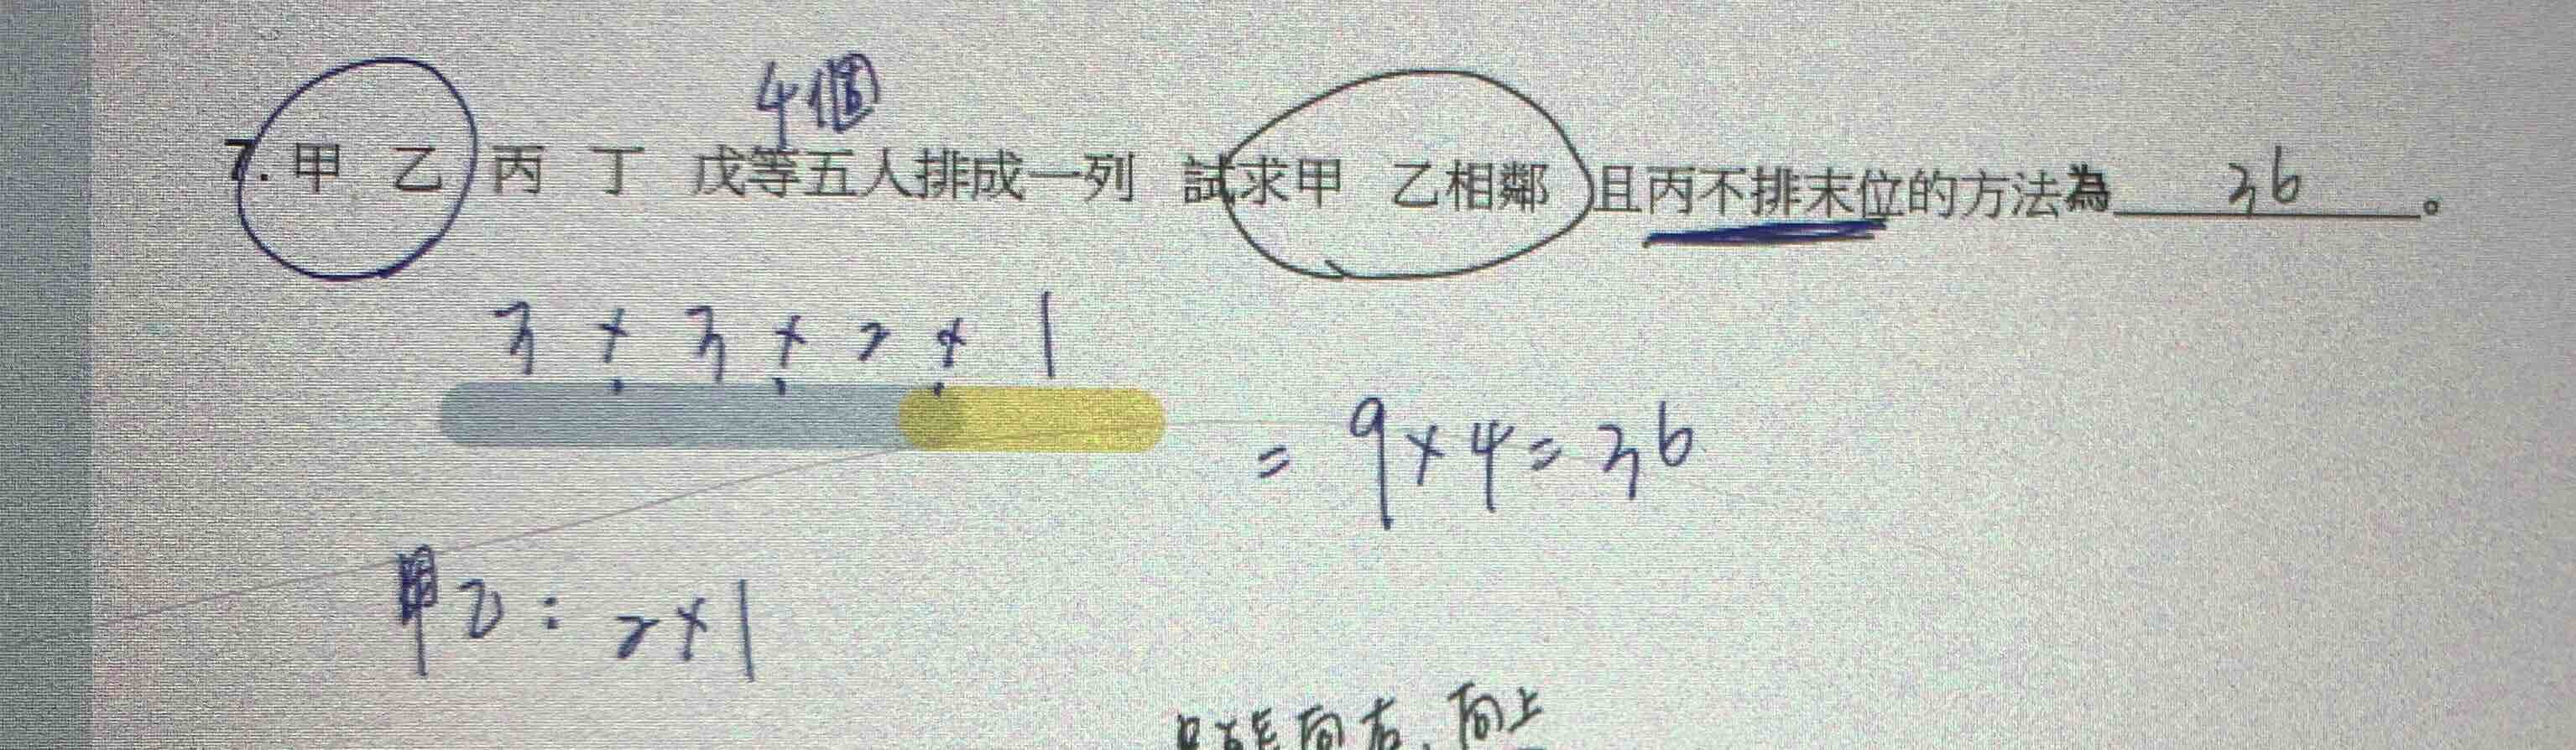 4個
7. 甲 乙 丙 丁 戊等五人排成一列 試求甲 乙相鄰 且丙不排末位的方法為 36 。
3 × 3 × 2 × 1
= 9×4=36
甲乙：2×1
向右，向上